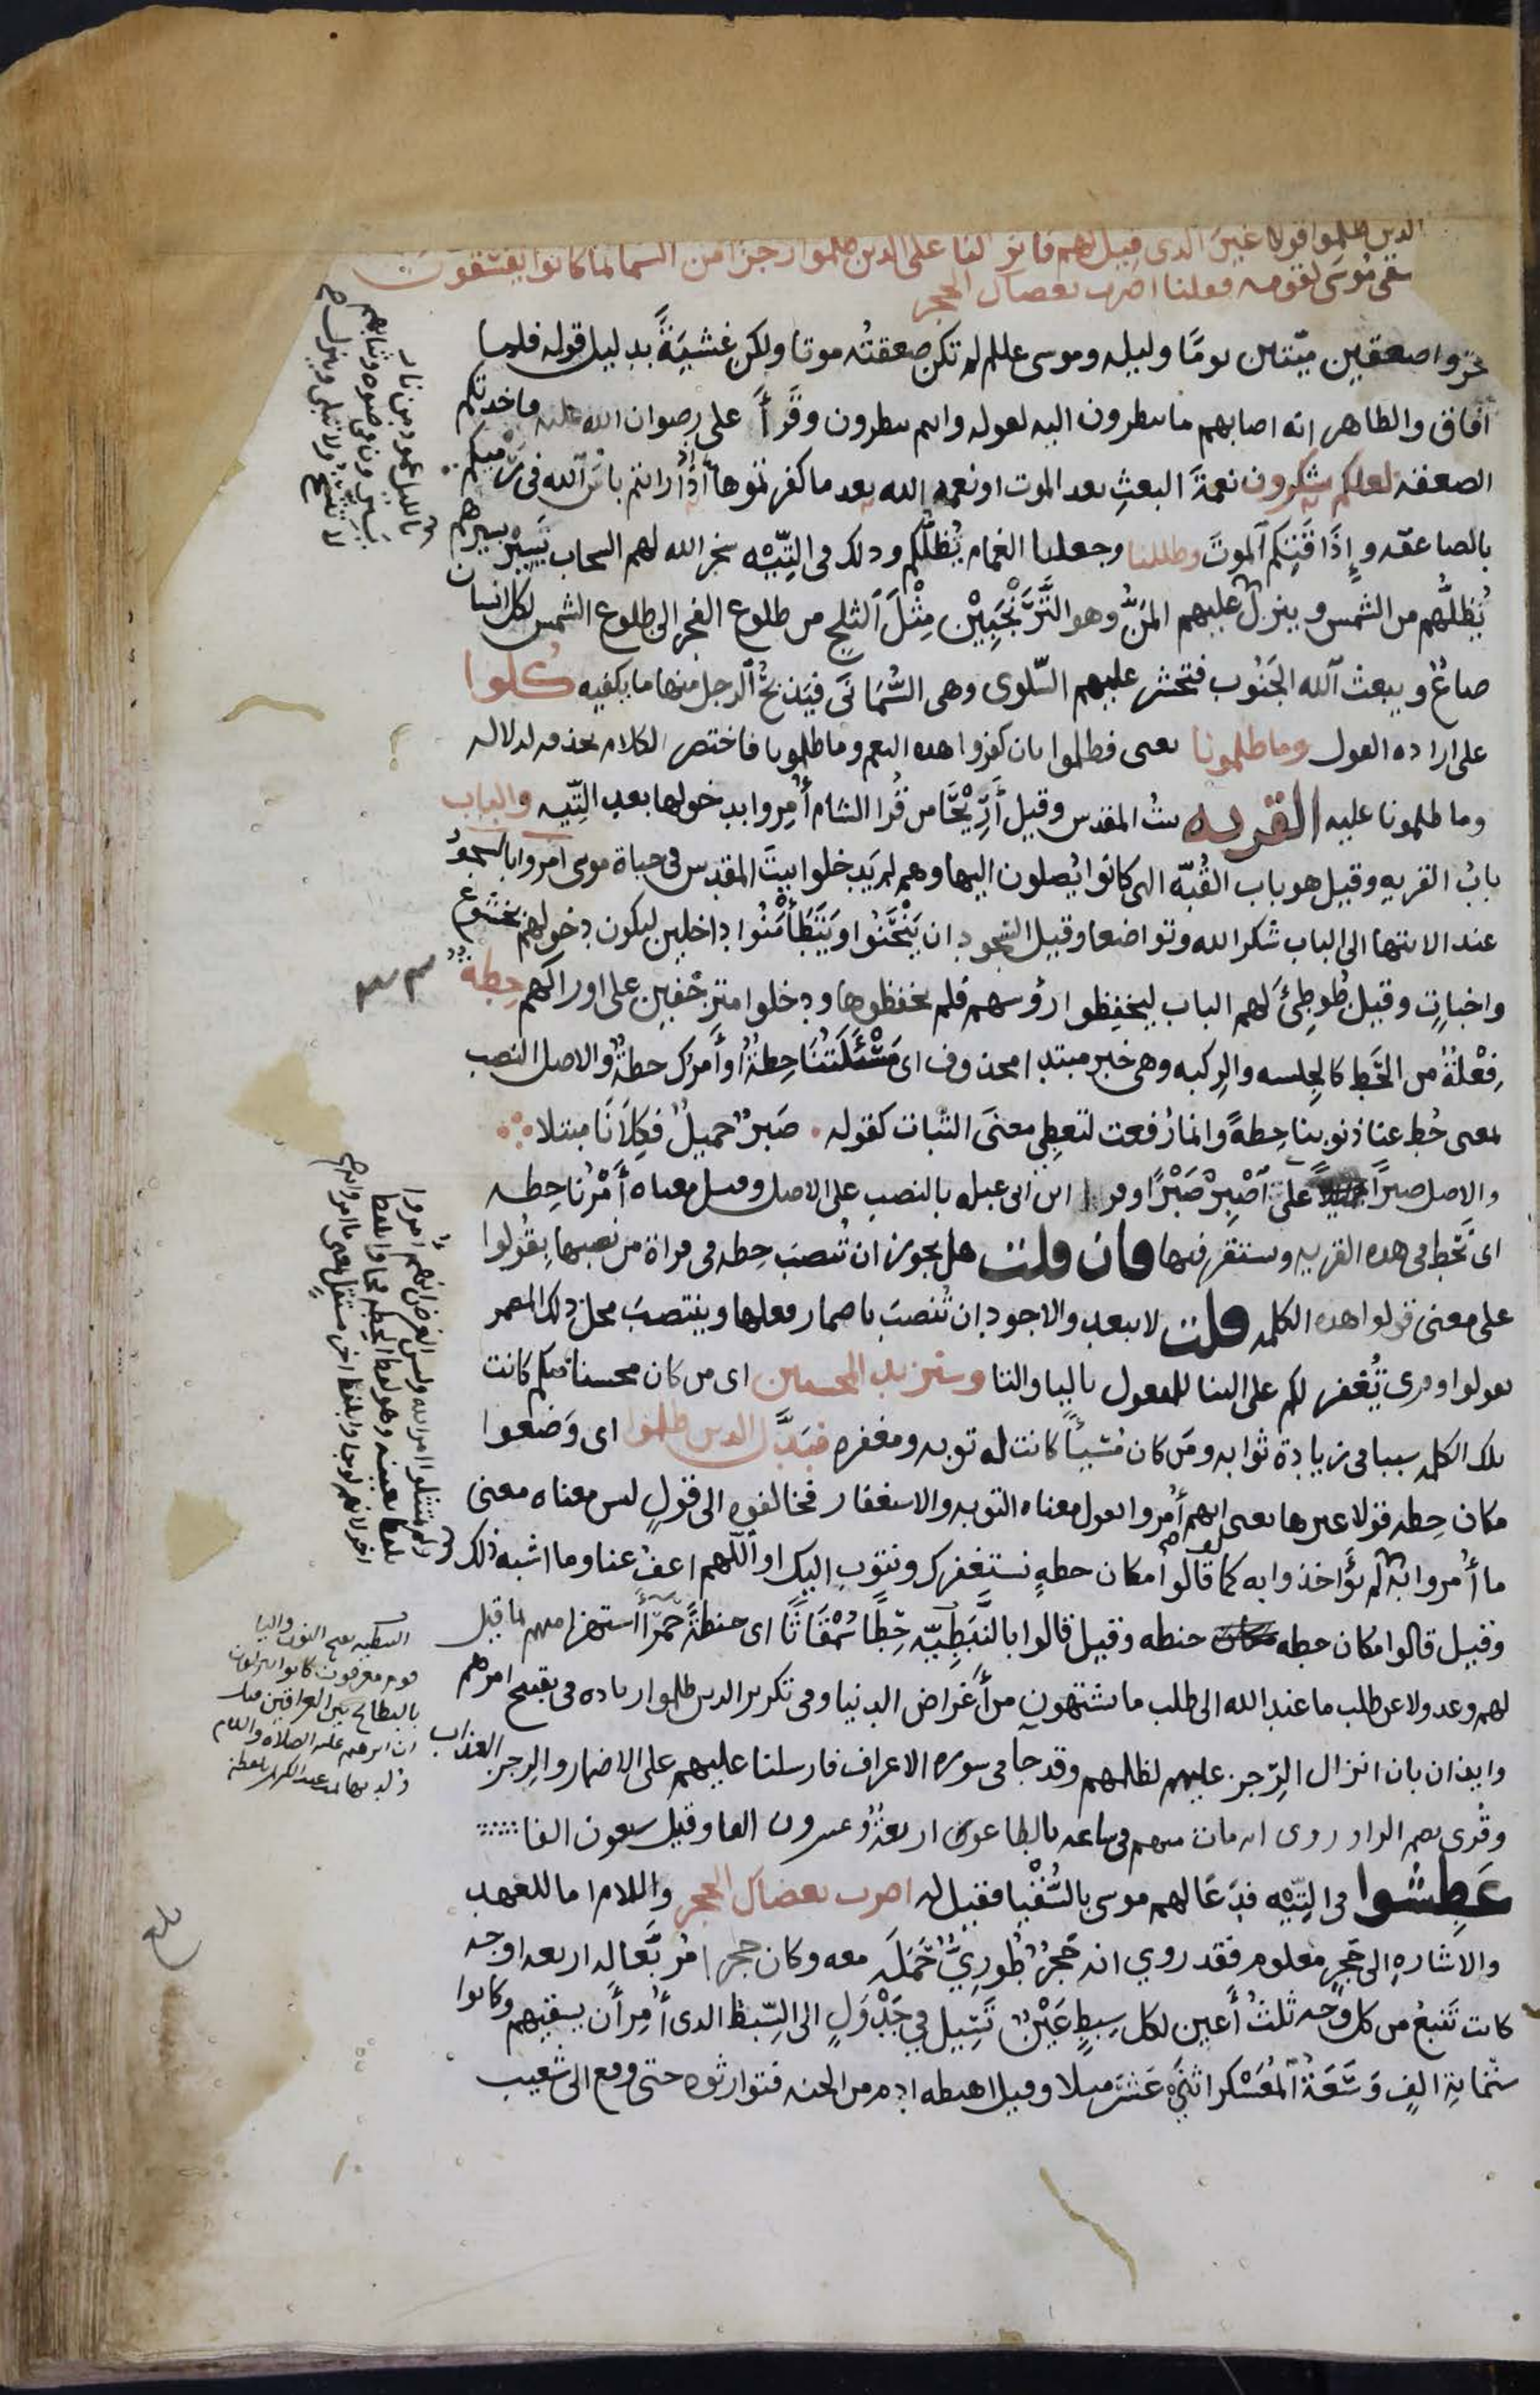 الذين ظلموا قولا غير الذى قيل لهم فانزلنا على الذين ظلموا رجزا من السما بما كانوا يفسقون
سقى موسى لقومه فقلنا اضرب بعصاك الحجر
خروا صعقين ميّتين يومًا وليله وموسى عللم لم تكن صعقتُه موتا ولكن غشيَةً بدليل قوله فلما
افاق والظاهر انه اصابهم ما ينظرون اليه لقوله وانتم تنظرون وقرأ على رضوان الله عليه فاخذتكم
الصعقة لعلكم تشكرون نعمةَ البعثِ بعد الموت او نعمه الله بعد ما كفرتموها اذا رايتم باسَ الله فى رميكم
بالصاعقه وإذاقتِكم الموتَ وظللنا وجعلنا الغمام يُظلّكم ودلك فى التِّيْه سخر الله لهم السحاب يَسِيْر بسيرهم
يُظلُّهم من الشمس وينزل عليهم المَنُّ وهو التَّرَنْجَبِيْن مِثْلَ الثلج من طلوع الفجر الى طلوع الشمس لكل انسان
صاعٌ ويبعث الله الجَنُوب فتحشر عليهم السّلوى وهى السُّمَانَى فيَذبحُ الرجل منها ما يكفيه كلوا
على اراده القول وما ظلمونا يعنى فظلموا بان كفروا هده النعم وما ظلمونا فاختصر الكلام بحذفه لدلاله
وما ظلمونا عليه القريه بيتُ المقدس وقيل أَرِيْحَا من قُرا الشام أُمِروا بدخولها بعد التِّيه والباب
بابُ القريه وقيل هو باب القُبّه التى كانوا يُصلون اليها وهم لم يَدخلوا بيتَ المقدس فى حياة موسى امروا بالسجود
عند الانتها الى الباب شكرا لله وتواضعا وقيل السّجود ان يَنْحَنُوا ويَتَطَأْمَنُوا داخلين ليكون دخولهم بخشوع
واخباتٍ وقيل طُوطِئَ لهم الباب ليخفِظوا رؤسهم فلم يخفظوها ودخلوا متزحّفين على اوراكهم حِطه
فِعْلَةٌ من الحَط كالجِلسه والرِكبه وهى خبر مبتدا محذوف اى مَسْئَلَتُنَا حِطةٌ او أَمرُك حطةٌ والاصل النصب
بمعنى حُط عنا ذنوبنا حِطةً وانما رُفعت لتعطِى معنَى الثبات كقوله صَبرٌ جميلٌ فكِلانَا مبتلا
والاصل صبرًا على اصْبِرْ صَبْرًا وقرا ابن ابى عبله بالنصب على الاصل وقيل معناه أَمْرُنا حِطه
اى نَحُط فى هده القريه ونستقر فيها فان قلت هل يجوز ان تُنصَبَ حِطه فى قراة من نصبها بِقُولوا
على معنى قولوا هده الكلمه قلت لا يبعد والاجود ان تُنصبَ باضمار فعلها وينتصبَ محل دلك المضمر
بقولوا وقرى يُغفر لكم على البنا للمفعول باليا والتا وسنزيد المحسنين اى من كان محسنا منكم كانت
تلك الكلمه سببا فى زيادة ثوابه ومَن كان مُسِيئًا كانت له توبه ومغفره فبَدَّل الدين ظلموا اى وَضعوا
مكان حِطه قولا غيرها يعنى انهم أُمروا بقول معناه التوبه والاستغفار فخالفوه الى قولٍ ليس معناه معنى
ما أُمروا به لم يُؤاخذوا به كما لو قالوا مكان حطهٍ نستغفرك ونتوب اليك او اللّهم اعفُ عنا وما اشبه ذلك
وقيل قالوا مكان حطه حنطه وقيل قالوا بالنَّبَطِيّه حِطًا سُمْقَاثًا اى حنطةً حَمرًا استهزا منهم لما قيل
لهم وعدولا عن طلب ما عند الله الى طلب ما يشتهون من أَغراض الدنيا وفى تكرير الدين ظلموا زياده فى تقبيح امرهم
وايذان بان انزال الرّجز عليهم لظلمهم وقد جا فى سوره الاعراف فارسلنا عليهم على الاضمار والرِجز العذاب
وقُرى بضم الرا وروى انه مات منهم فى ساعه بالطاعون اربعةٌ وعشرون الفا وقيل سبعون الفا
عَطِشوا فى التِّيْه فدَعَا لهم موسى بالسُّقْيا فقيل له اضرب بعصاك الحجر واللام اما للعهد
والاشارهِ الى حَجرٍ معلوم فقد روي انه حَجرٌ طُورِيٌّ حَمَلَه معه وكان حجرا مُربّعا له اربعه اوجه
كانت تَنبعُ من كل وَجه ثلثُ أَعين لكل سِبطٍ عَيْنٌ تَسِيل في جَدْوَلٍ الى السِّبط الدى أُمِر أن يسقيهم وكانوا
ستّمايةِ الفٍ وسَعَةُ المُعَسْكر اثنَى عَشَر ميلا وقيل اهبطه ادم من الجنه فتوارثوه حتى وقع الى شعيب
بالليل عمود من نار
يسيرون فى ضوءه وثيابهم
لا تتسخ ولا تبلى وينزل
ولم يمتثلوا امر الله وليس الغرض انهم أُمروا
بلفظ بعينه وهو لفظ الحطه فجاوا بلفظ
اخر لانهم لو جاوا بلفظ اخر مستقل بمعنى ما امروا به
النبطيه بفتح النون والبا
قوم معروفون كانوا ينزلون
بالبطائح بين العراقين
ان ابرهيم عليه الصلاه والسلام
بلغ